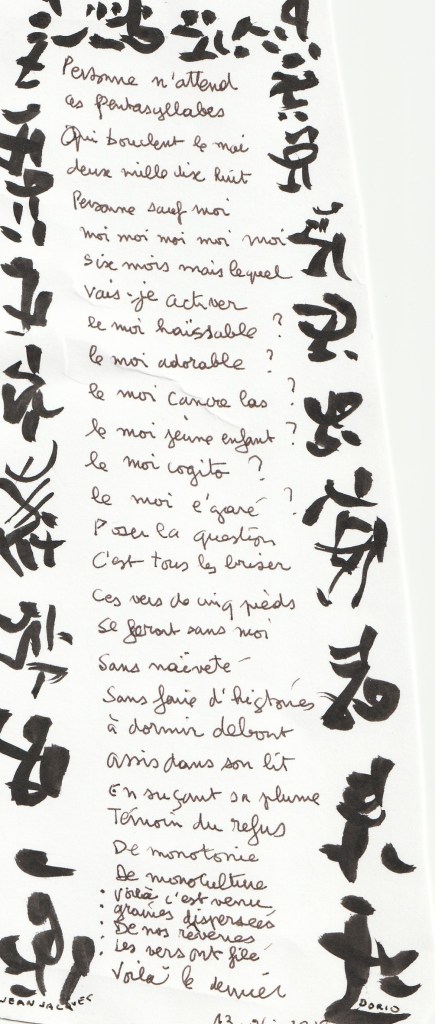 Personne n'attend
ces pentasyllabes
Qui boulent le moi
deux mille dix huit
Personne sauf moi
moi moi moi moi moi
six mois mais lequel
vais-je activer
le moi haïssable ?
le moi adorable ?
le moi cancre las ?
le moi jeune enfant ?
le moi cogito ?
le moi égaré ?
Poser la question
C'est tous les briser
Ces vers de cinq pieds
se feront sans moi
Sans naïveté
Sans faire d'histoires
à dormir debout
assis dans son lit
En suçant sa plume
Témoin du refus
De monotonie
De monoculture
voilà c'est venu
graines dispersées
De nos rêveries
Les vers ont filé
Voilà le dernier
JEAN JACQUES
DORIO